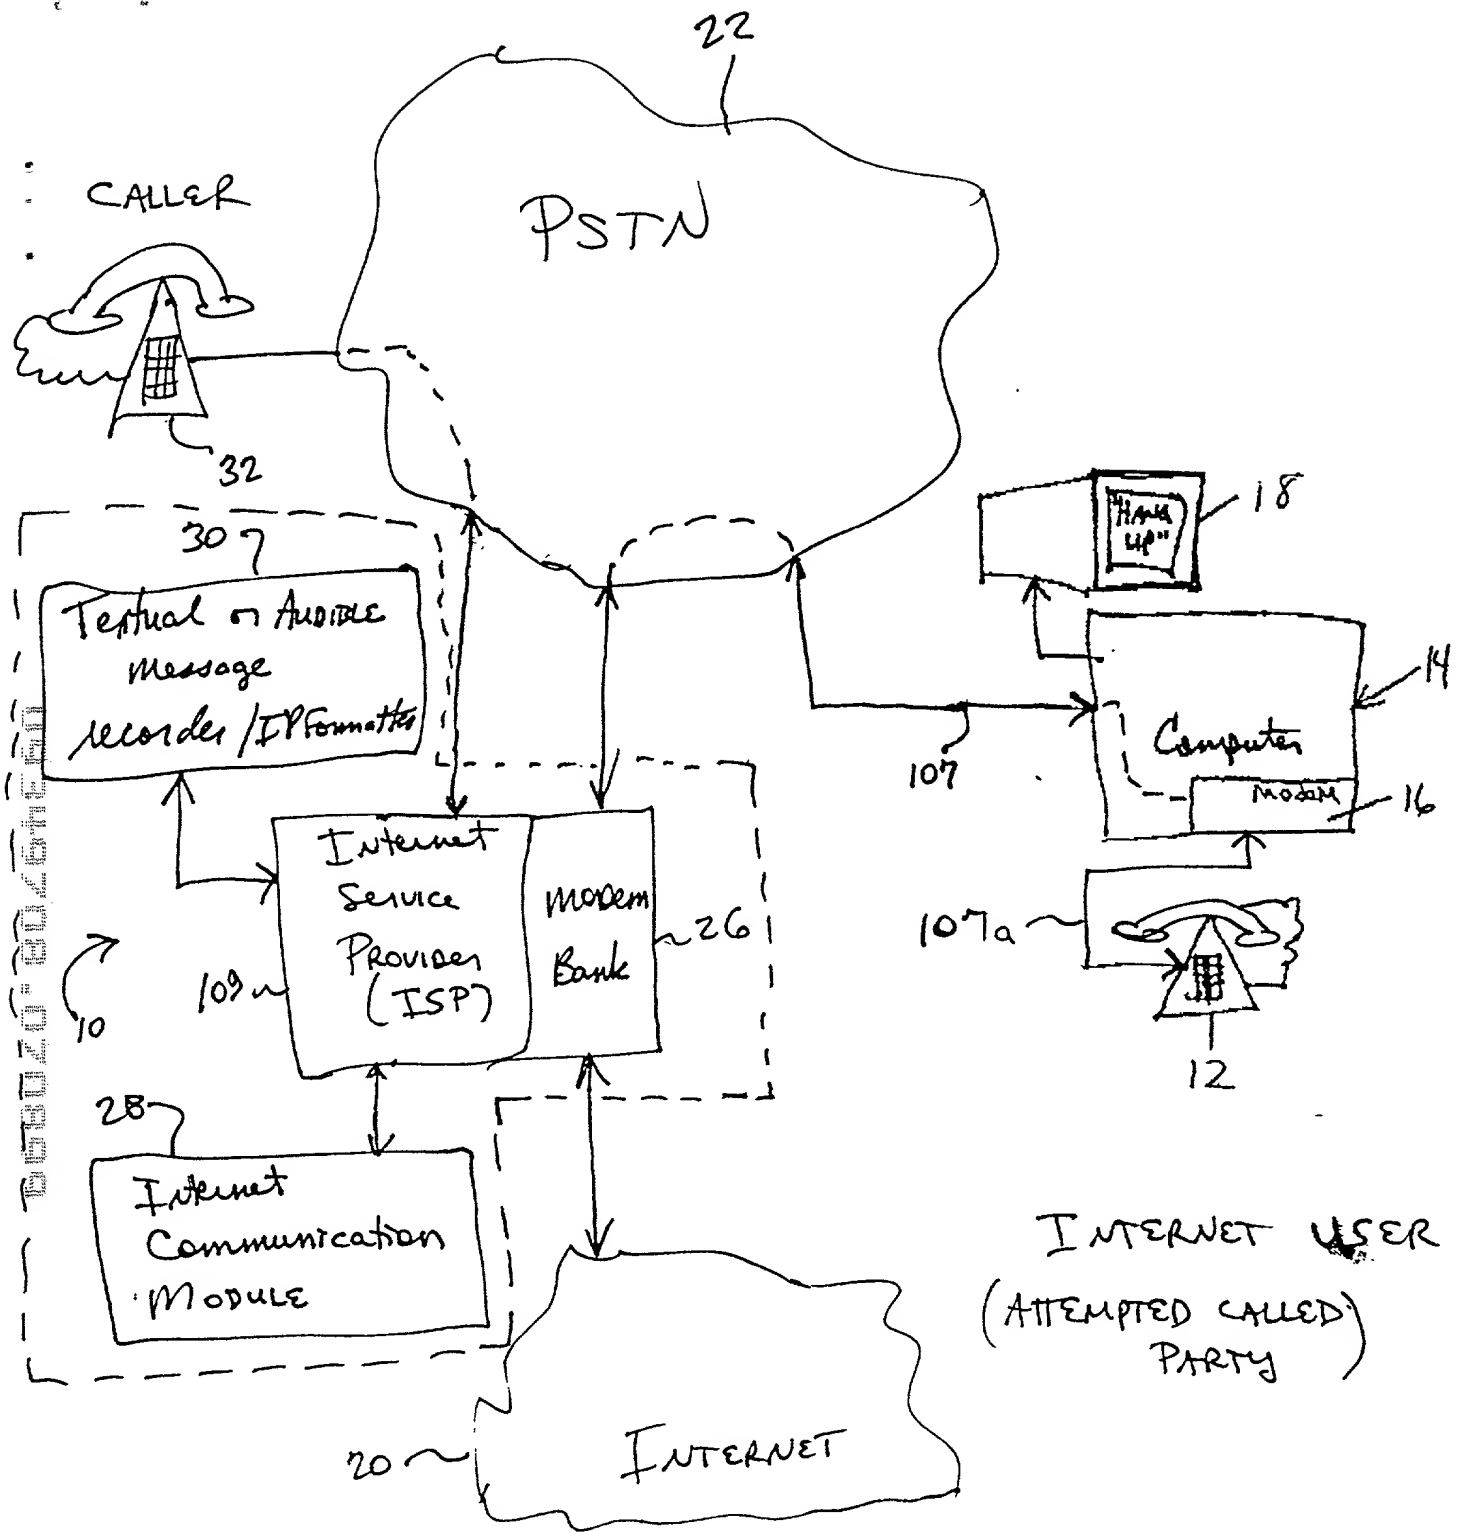 22
PSTN
CALLER
32
30
Textual or AUDIBLE
message
recorder/IP Formatter
18
"HANG
UP"
14
Computer
MODEM
16
107
107a
12
Internet
Service
PROVIDER
(ISP)
MODEM
Bank
26
109
10
28
Internet
Communication
MODULE
09349708.070899
INTERNET USER
(ATTEMPTED CALLED
PARTY)
20
INTERNET